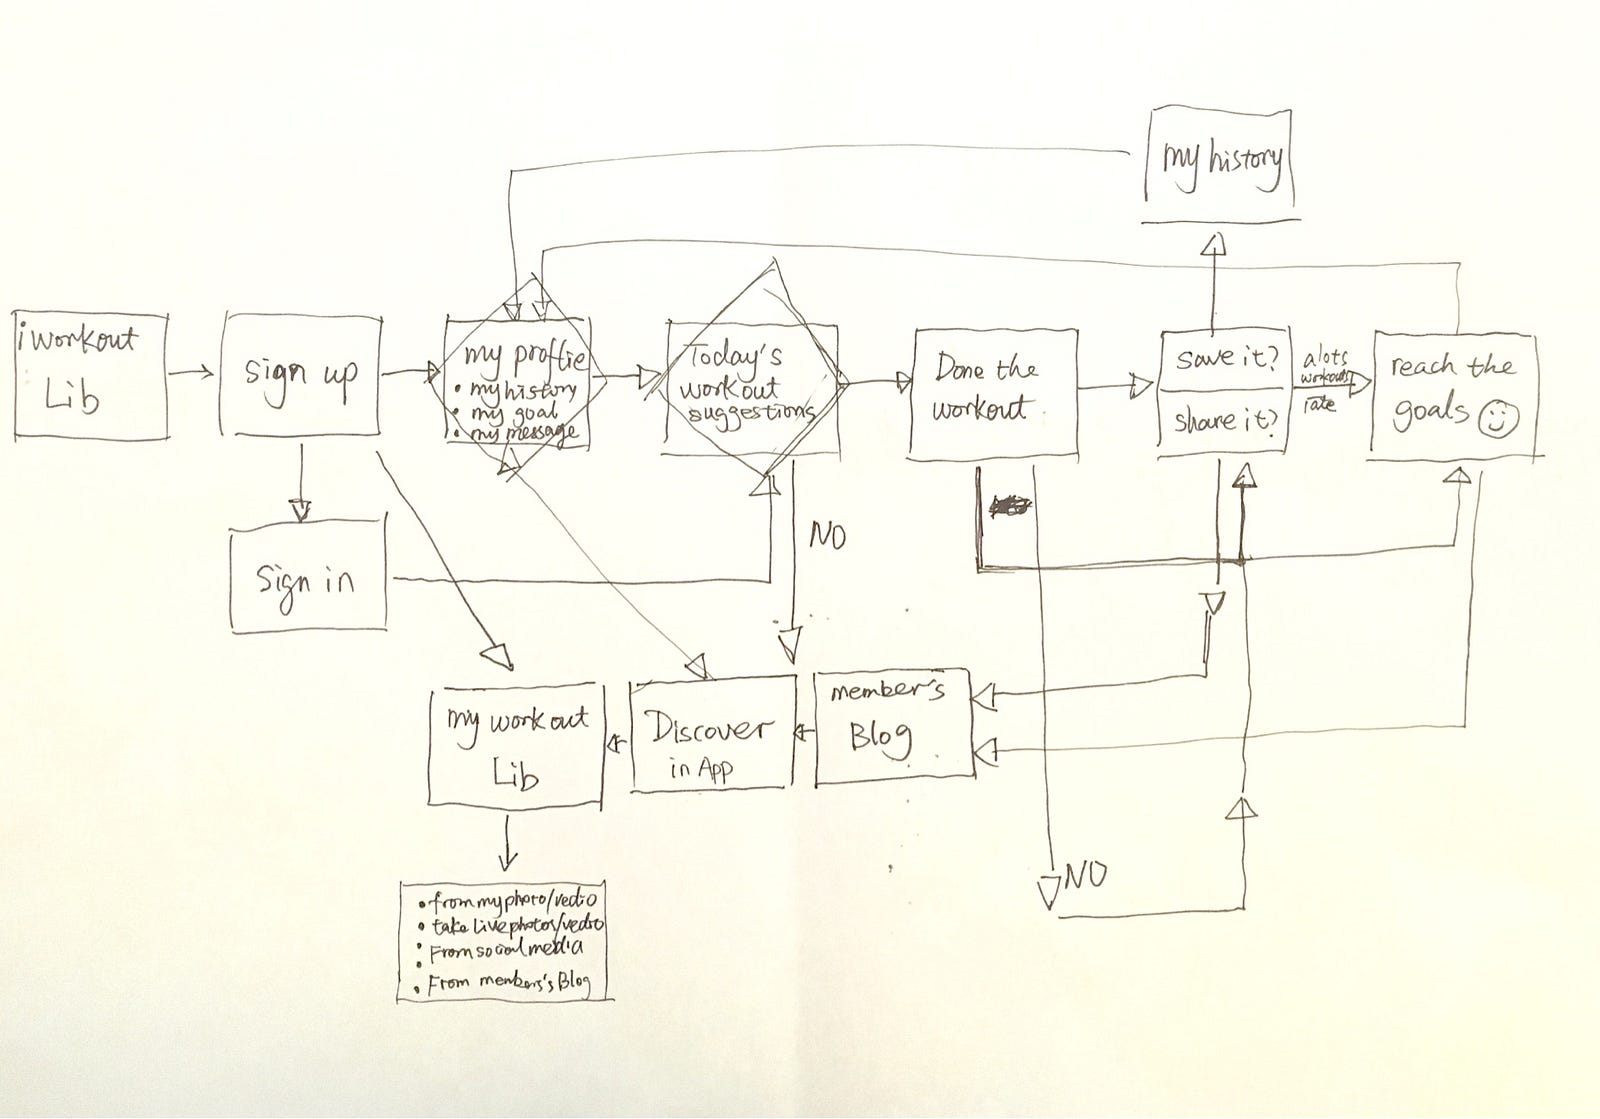 my history
iworkout
Lib
sign up
my proftie
• my history
• my goal
• my message
Today's
workout
suggestions
Done the
workout
save it?
share it?
alots
workouts
rate
reach the
goals
NO
Sign in
my workout
Lib
Discover
in App
member's
Blog
NO
• from my photo/vedio
• take Live photos/vedio
• From social media
• From members's Blog